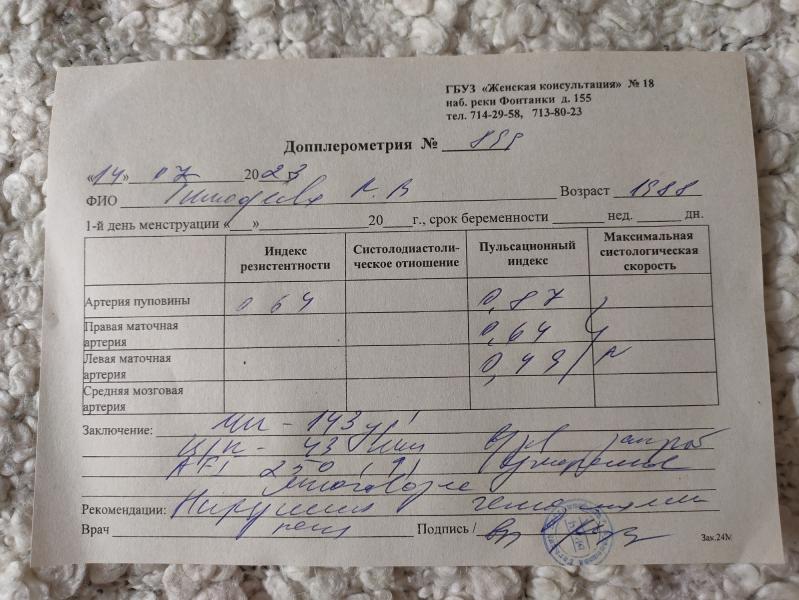 ГБУЗ «Женская консультация» № 18
наб. реки Фонтанки д. 155
тел. 714-29-58, 713-80-23
Допплерометрия №
«14» 07 2023
ФИО Возраст 1988
1-й день менструации « » 20 г., срок беременности нед. дн.
Индекс резистентности Систолодиастоли-ческое отношение Пульсационный индекс Максимальная систологическая скорость
Артерия пуповины 0 64 0,87
Правая маточная артерия 0,64
Левая маточная артерия 0,49 N
Средняя мозговая артерия
Заключение: - 143 уд/
- 43
AFI 250
многоводие
Рекомендации: Нарушения гемодинамики
Врач нет Подпись /
Зак.24М